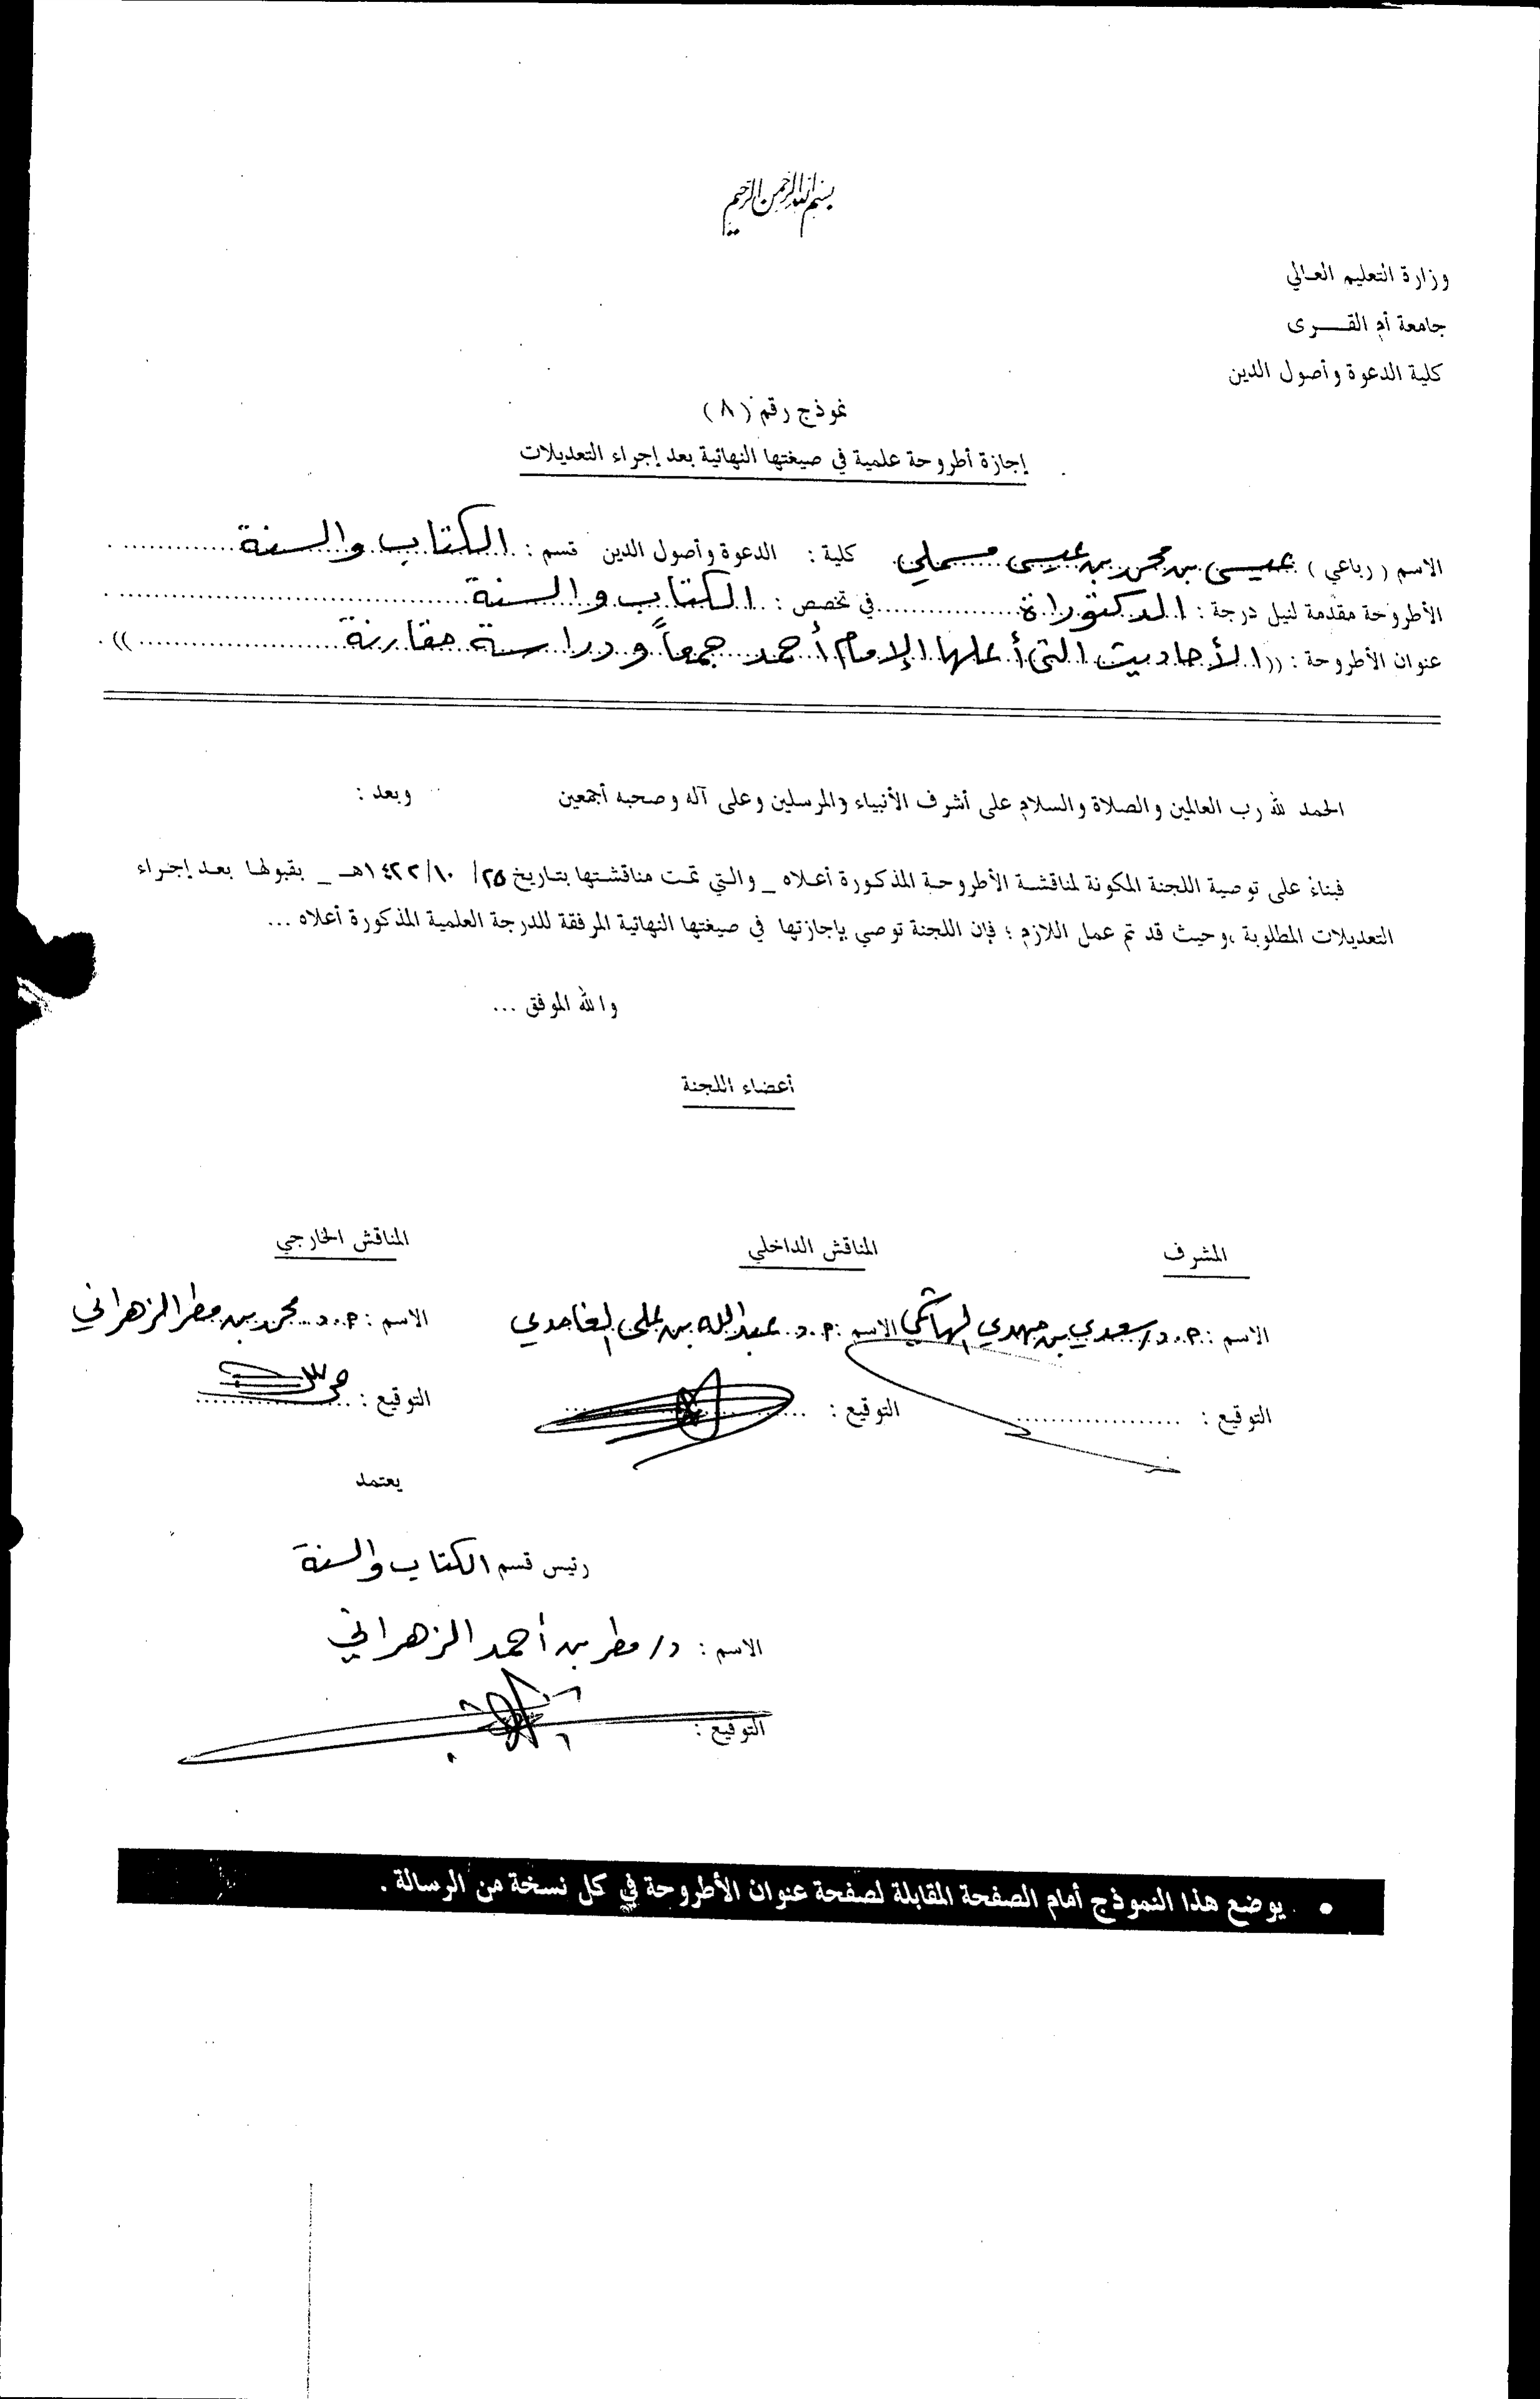 بسم الله الرحمن الرحيم
وزارة التعليم العالي
جامعة أم القرى
كلية الدعوة وأصول الدين
نموذج رقم (٨)
إجازة أطروحة علمية في صيغتها النهائية بعد إجراء التعديلات
الاسم (رباعي) عيسى بن محمد بن عيسى مسملي كلية : الدعوة وأصول الدين قسم : الكتاب والسنة
الأطروحة مقدمة لنيل درجة : الدكتوراة في تخصص : الكتاب والسنة
عنوان الأطروحة : (( الأحاديث التي أعلها الإمام أحمد جمعاً ودراسة مقارنة ))
الحمد لله رب العالمين والصلاة والسلام على أشرف الأنبياء والمرسلين وعلى آله وصحبه أجمعين وبعد :
فبناءً على توصية اللجنة المكونة لمناقشة الأطروحة المذكورة أعلاه _ والتي تمت مناقشتها بتاريخ ٢٥/ ١٠/ ١٤٢٢هـ _ بقبولها بعد إجراء
التعديلات المطلوبة ،وحيث قد تم عمل اللازم ؛ فإن اللجنة توصي بإجازتها في صيغتها النهائية المرفقة للدرجة العلمية المذكورة أعلاه ...
والله الموفق ...
أعضاء اللجنة
المشرف المناقش الداخلي المناقش الخارجي
الاسم : أ.د/ سعدي بن مهدي الهاشمي الاسم : أ.د. عبدالله بن علي الغامدي الاسم : أ.د. محمد بن مطر الزهراني
التوقيع : التوقيع : التوقيع :
يعتمد
رئيس قسم الكتاب والسنة
الاسم : د/ مطر بن أحمد الزهراني
التوقيع :
• يوضع هذا النموذج أمام الصفحة المقابلة لصفحة عنوان الأطروحة في كل نسخة من الرسالة .